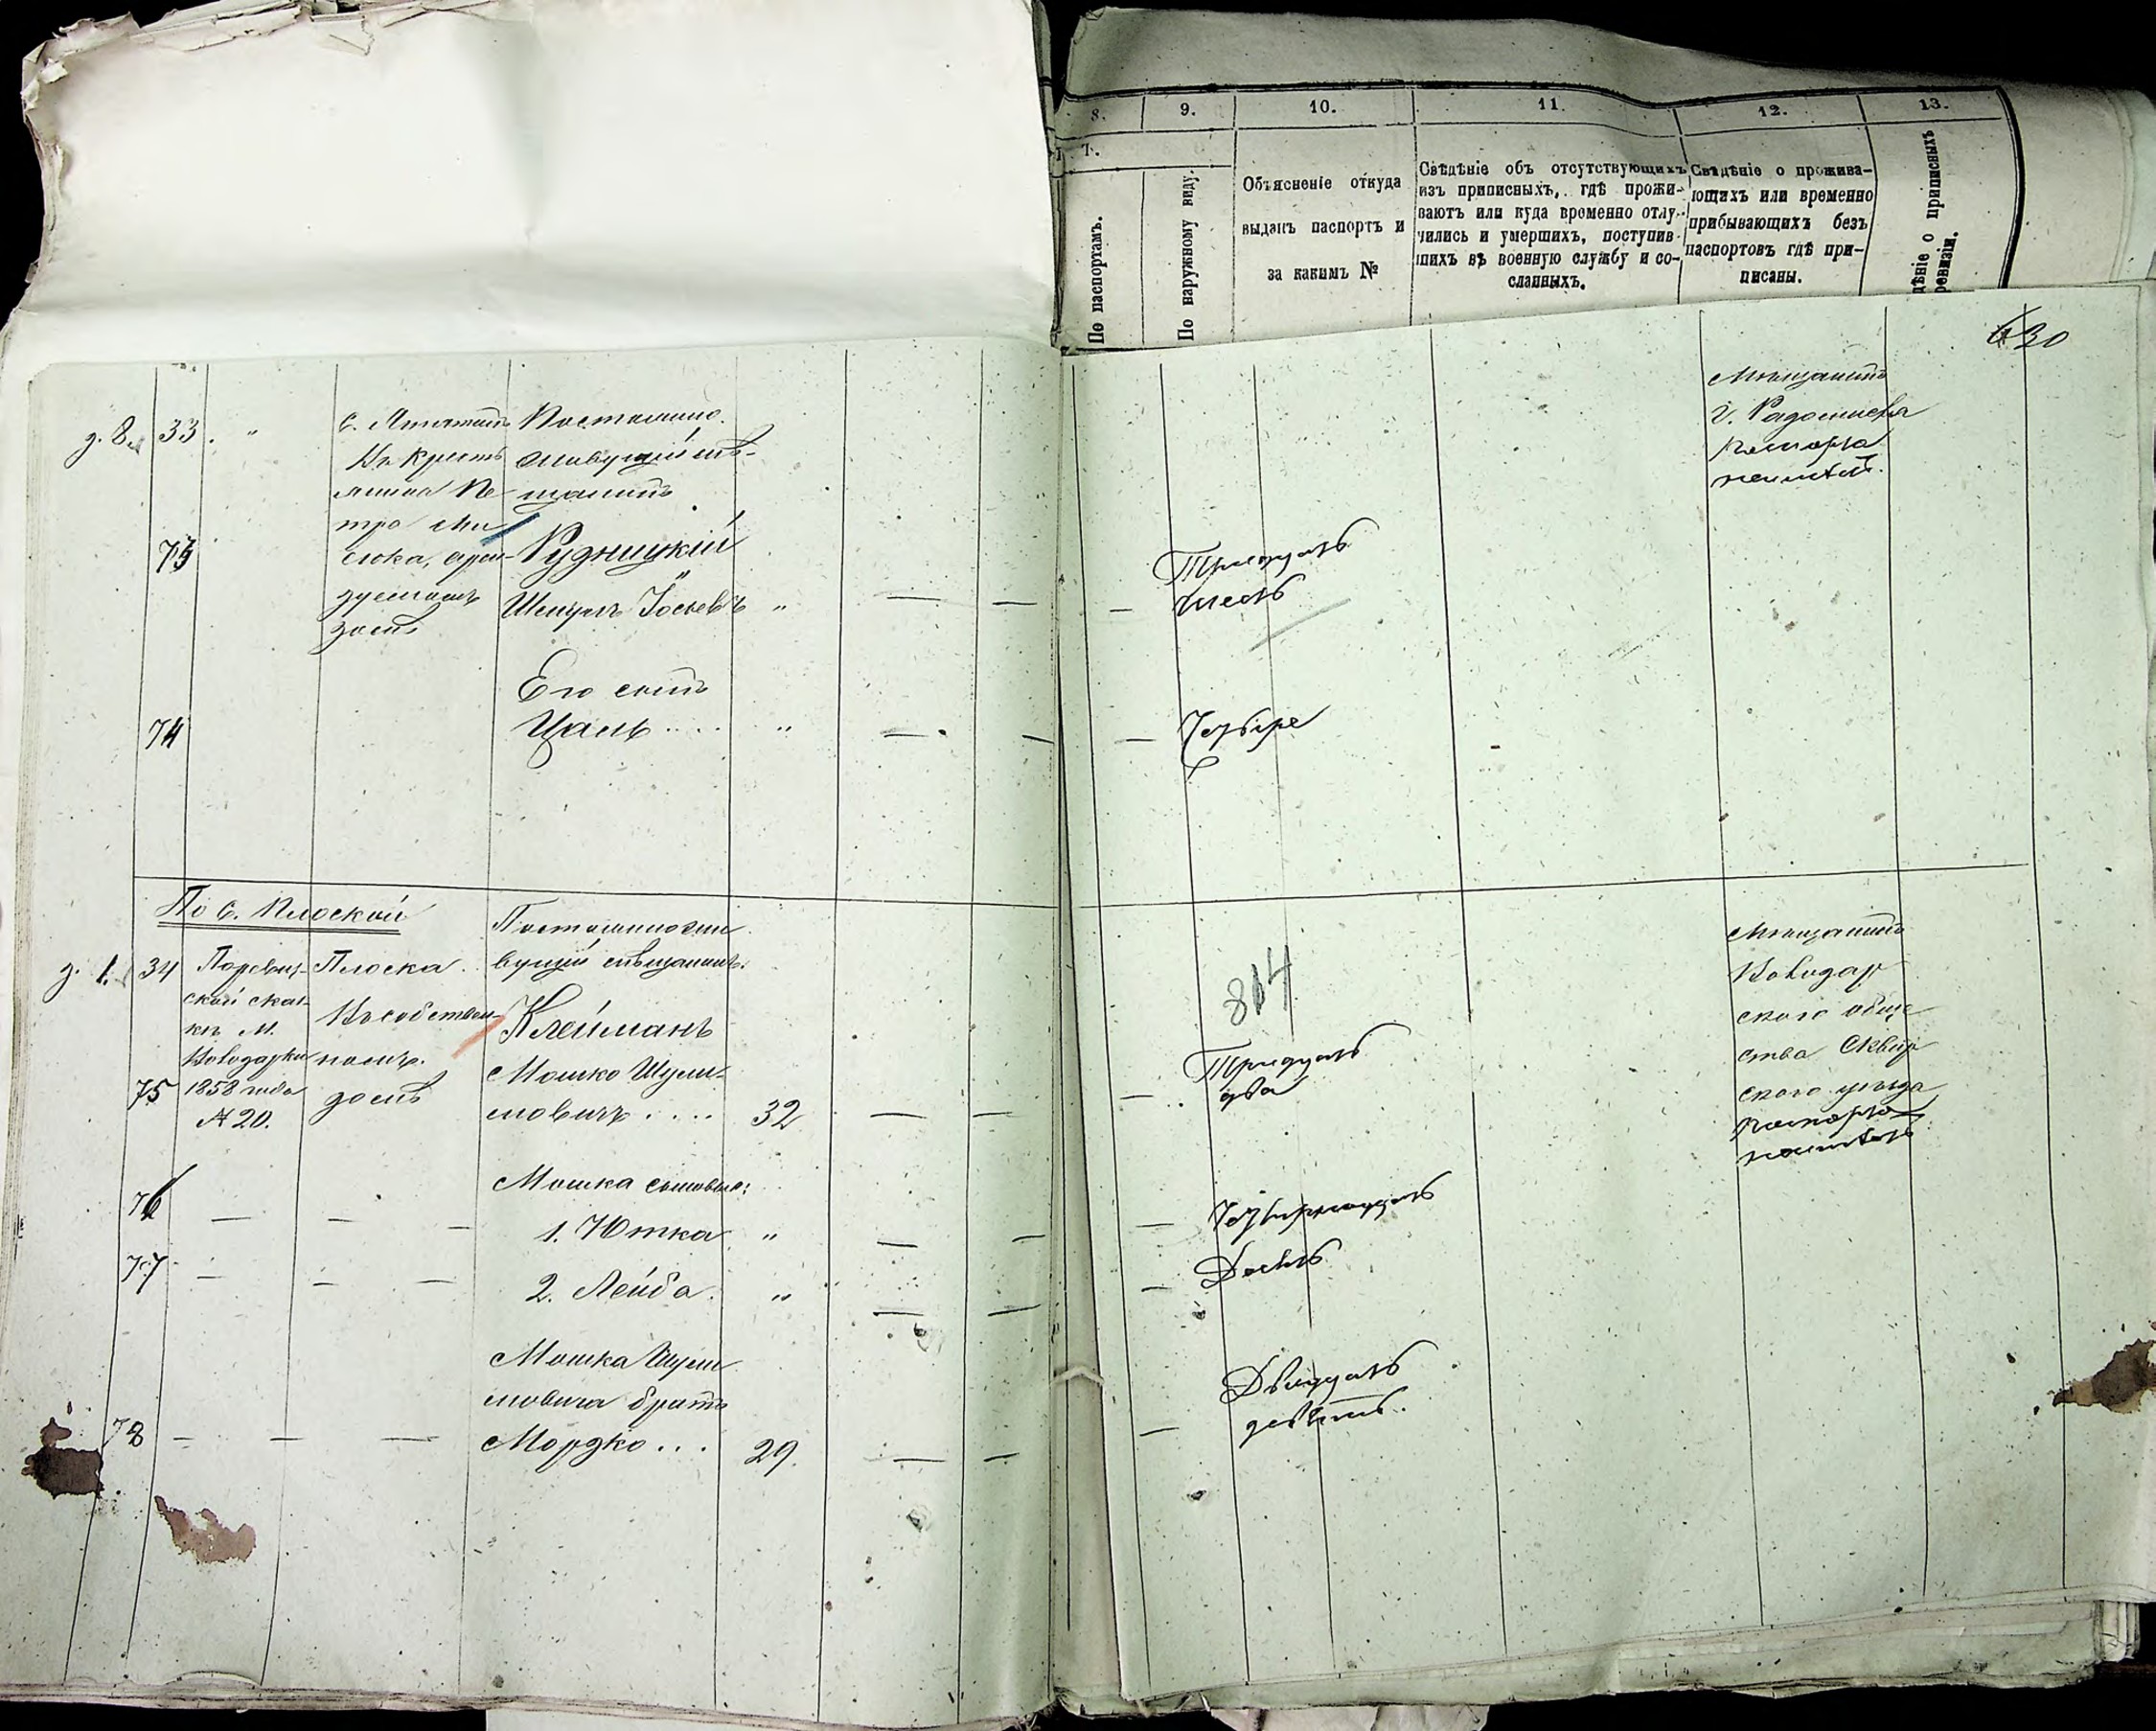 8.
9.
10.
11.
12.
13.
По паспортамъ.
По наружному виду.
Объясненіе откуда
выданъ паспортъ и
за какимъ №
Свѣдѣніе объ отсутствующихъ
изъ приписныхъ, гдѣ прожи-
ваютъ или куда временно отлу-
чились и умершихъ, поступив-
шихъ въ военную службу и со-
сланныхъ.
Свѣдѣніе о прожива-
ющихъ или временно
прибывающихъ безъ
паспортовъ гдѣ при-
писаны.
дѣніе о приписныхъ
ревизіи.
630
д. 8. 33. "
С.
Въ кресть
янина Пе-
тра
сюка, арен-
дуемомъ
домѣ
Постоянно
живущій мѣ-
щанинъ
73
Рудницкій
Шмуль Іосьевъ "
Тридцать
шесть
Мѣщанинъ
г. Радомысля
паспорта
неимѣетъ.
Его сынъ
74
Цаль.... "
Четыре
По с. Плоской
д. 1. 34
По ревиз-
ской сказ-
кѣ м.
Володарки
1858 года
№ 20.
Плоска
Въ собствен-
номъ
домѣ
Постоянно жи
вущій мѣщанинъ.
Клейманъ
75
Мошко Шули-
мовичъ.... 32
814
Тридцать
два
Мѣщанинъ
Володар
скаго обще
ства Сквир
скаго уѣзда
паспорта
неимѣетъ
Мошка сыновья:
76
1. Ютка "
Четырнадцать
77
2. Лейба. "
Мошка Шули
мовича братъ
78
Мордко... 29.
Двадцать
девять.